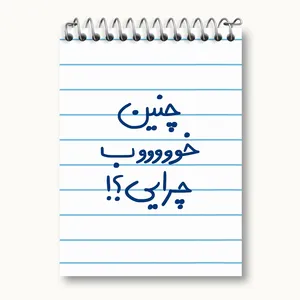 چنین
خوووووب
چرایی؟!